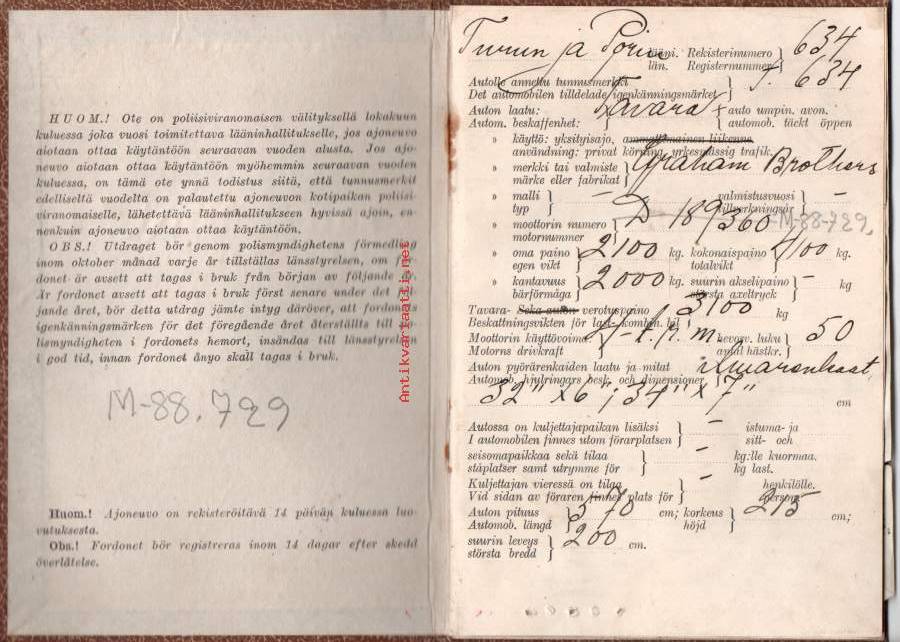 HUOM.! Ote on poliisiviranomaisen välityksellä lokakuun
kuluessa joka vuosi toimitettava lääninhallitukselle, jos ajoneuvo
aiotaan ottaa käytäntöön seuraavan vuoden alusta. Jos ajo-
neuvo aiotaan ottaa käytäntöön myöhemmin seuraavan vuoden
kuluessa, on tämä ote ynnä todistus siitä, että tunnusmerkit
edelliseltä vuodelta on palautettu ajoneuvon kotipaikan poliisi-
viranomaiselle, lähetettävä lääninhallitukseen hyvissä ajoin, en-
nenkuin ajoneuvo aiotaan ottaa käytäntöön.
OBS.! Utdraget bör genom polismyndighetens förmedling
inom oktober månad varje år tillställas länsstyrelsen, om
donet är avsett att tagas i bruk från början av följande
Är fordonet avsett att tagas i bruk först senare under det
jande året, bör detta utdrag jämte intyg däröver, att fordonets
igenkänningsmärken för det föregående året återställts till
lismyndigheten i fordonets hemort, insändas till länsstyrelsen
i god tid, innan fordonet ånyo skall tagas i bruk.
M-88.729
Huom.! Ajoneuvo on rekisteröitävä 14 päivän kuluessa luo-
vutuksesta.
Obs.! Fordonet bör registreras inom 14 dagar efter skedd
överlåtelse.
Antikvariaatti.net
Turun ja Porin lääni. Rekisterinumero } 634
län. Registernummer
Autolle annettu tunnusmerkki } T. 634
Det automobilen tilldelade igenkänningsmärket
Auton laatu: Tavara auto umpin. avon.
Autom. beskaffenhet: automob. täckt öppen
» käyttö: yksityisajo, ammattimainen liikenne
användning: privat körning, yrkesmässig trafik.
» merkki tai valmiste } Graham Brothers
märke eller fabrikat
» malli } — valmistusvuosi } —
typ tillverkningsår
» moottorin numero } D 189360 M-88-729
motornummer
» oma paino } 2100 kg. kokonaispaino } 4100 kg.
egen vikt totalvikt
» kantavuus } 2000 kg. suurin akselipaino } —
bärförmåga största axeltryck
Tavara- Seka-auton verotuspaino 3100 kg
Beskattningsvikten för last- kombin. bil
Moottorin käyttövoima hevosv. luku } 50
Motorns drivkraft antal hästkr.
Auton pyöränrenkaiden laatu ja mitat } ilmarenkaat
Automob. hjulringars besk. och dimensioner
32" x 6"; 34" x 7" cm
Autossa on kuljettajapaikan lisäksi } — istuma- ja
I automobilen finnes utom förarplatsen sitt- och
seisomapaikkaa sekä tilaa } — kg:lle kuormaa.
ståplatser samt utrymme för kg last.
Kuljettajan vieressä on tilaa } — henkilölle.
Vid sidan av föraren finnes plats för person
Auton pituus } 570 cm; korkeus } 215 cm;
Automob. längd höjd
suurin leveys } 200 cm.
största bredd